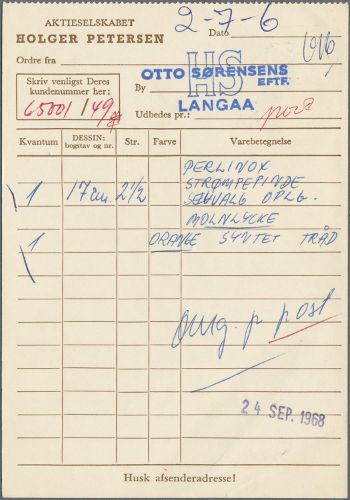 AKTIESELSKABET
HOLGER PETERSEN
Dato 2-7-6
Ordre fra
Skriv venligst Deres
kundenummer her:
65001/49
HS
OTTO SØRENSENS
EFTF.
By
LANGAA
Udbedes pr.: post
Kvantum DESSIN: bogstav og nr. Str. Farve Varebetegnelse
PERLINOX
1 17 cm. 2 1/2 STRØMPEPINDE
SELVVALG OPLG.
MØLNLYCKE
1 ORANGE SYNTET TRÅD
omg. p post
24 SEP. 1968
Husk afsenderadresse!